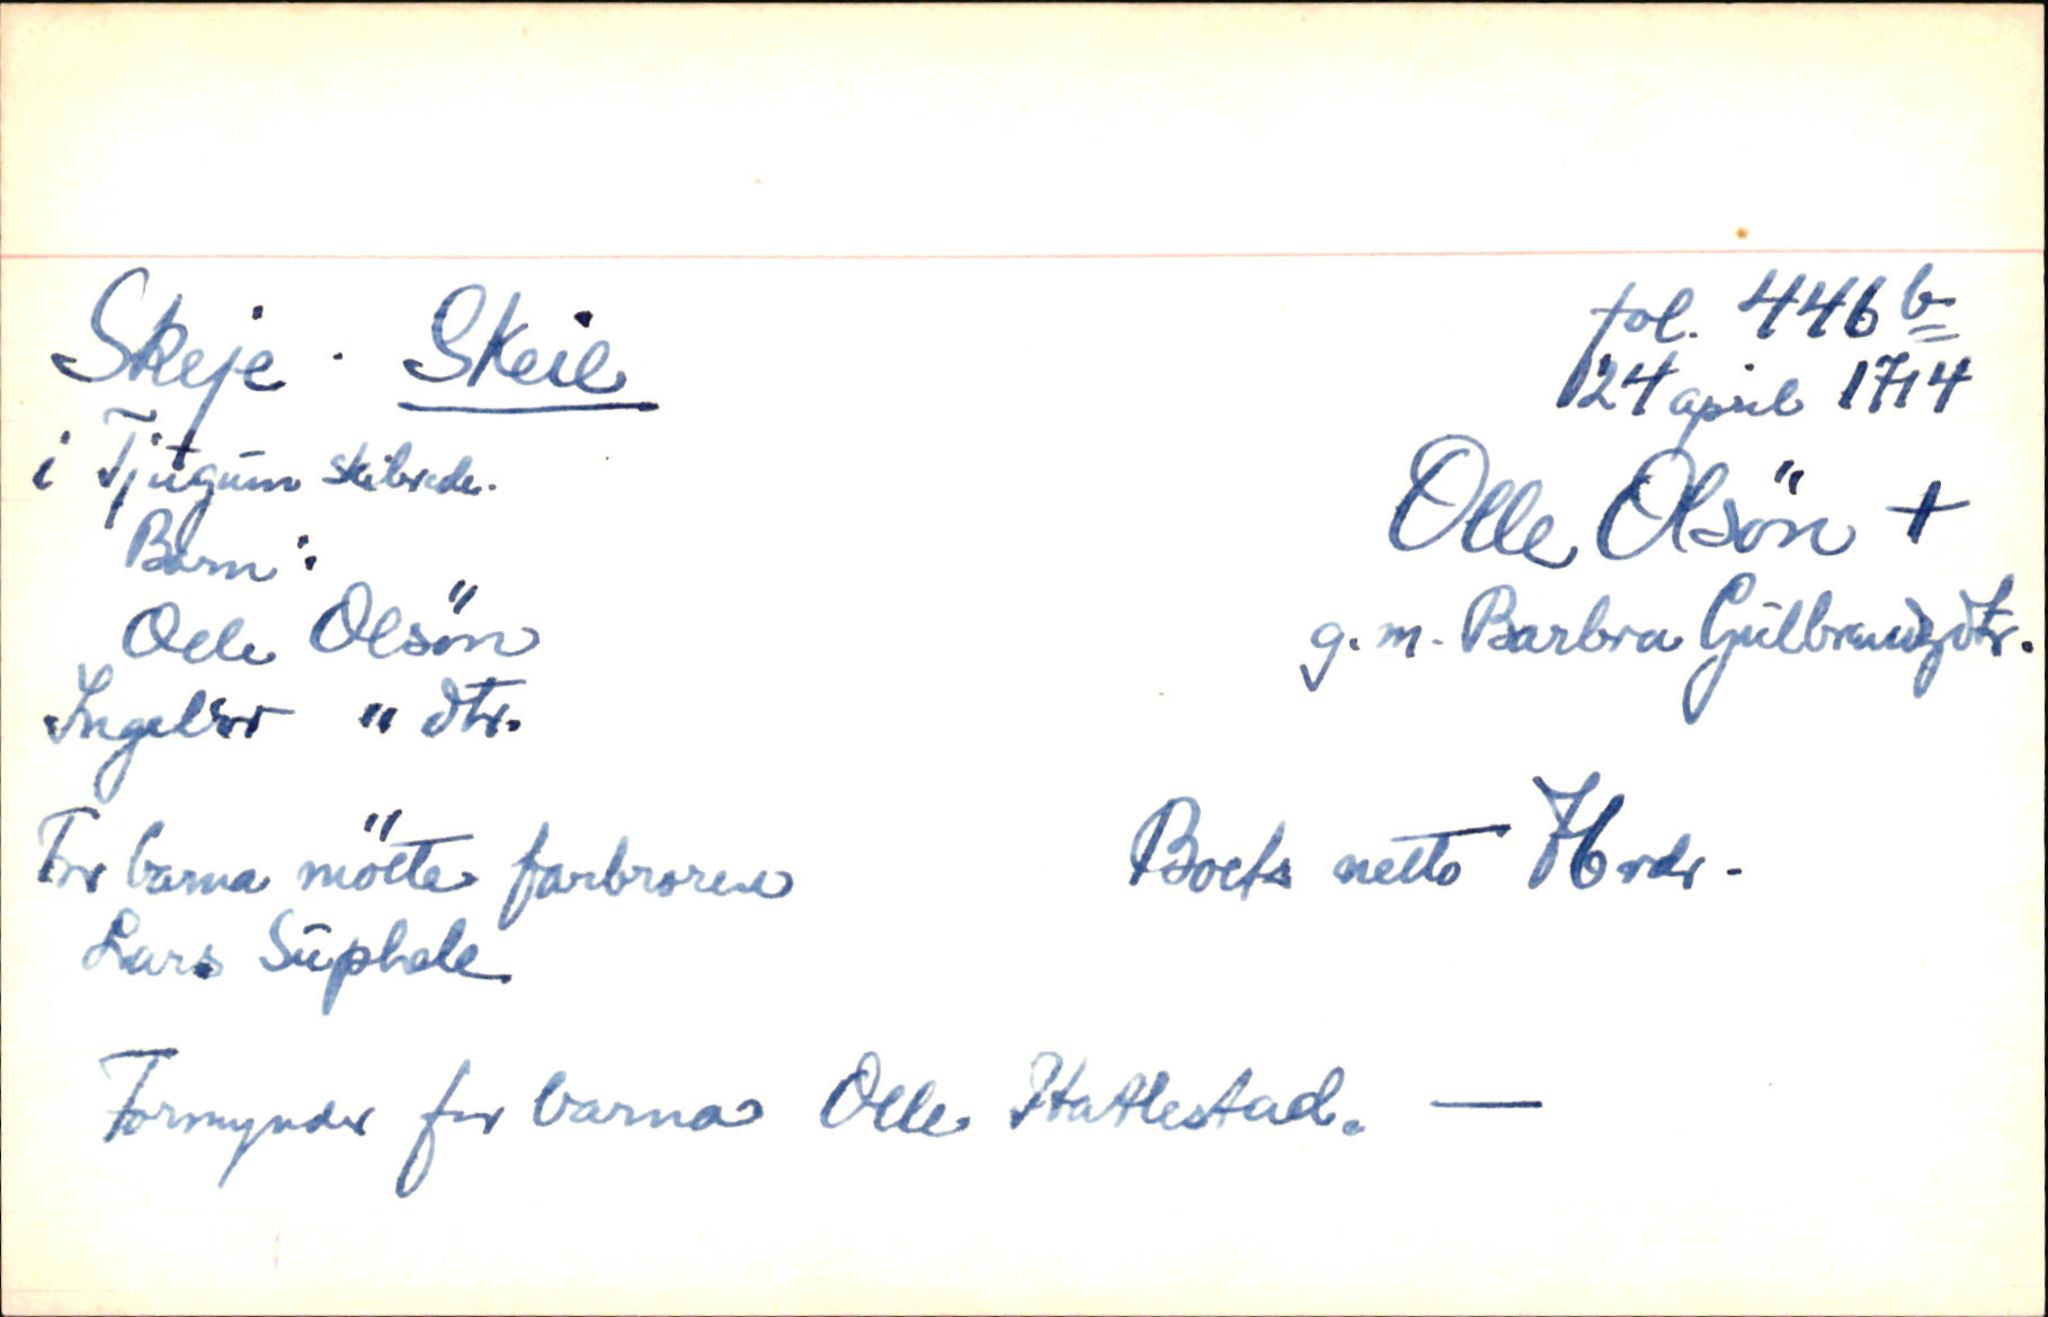 Skeje · Skeie
fol. 446 b
24 april 1714
i Tjugum skibrede.
Olle Olsön +
Barn:
g.m. Barbra Gülbrandzdtr.
Olle Olsön
Ingebor " dtr.
For barna mötte farbroren
Boets netto 76 rdr -
Lars Süphele
Formynder for barna Olle Hatlestad. —